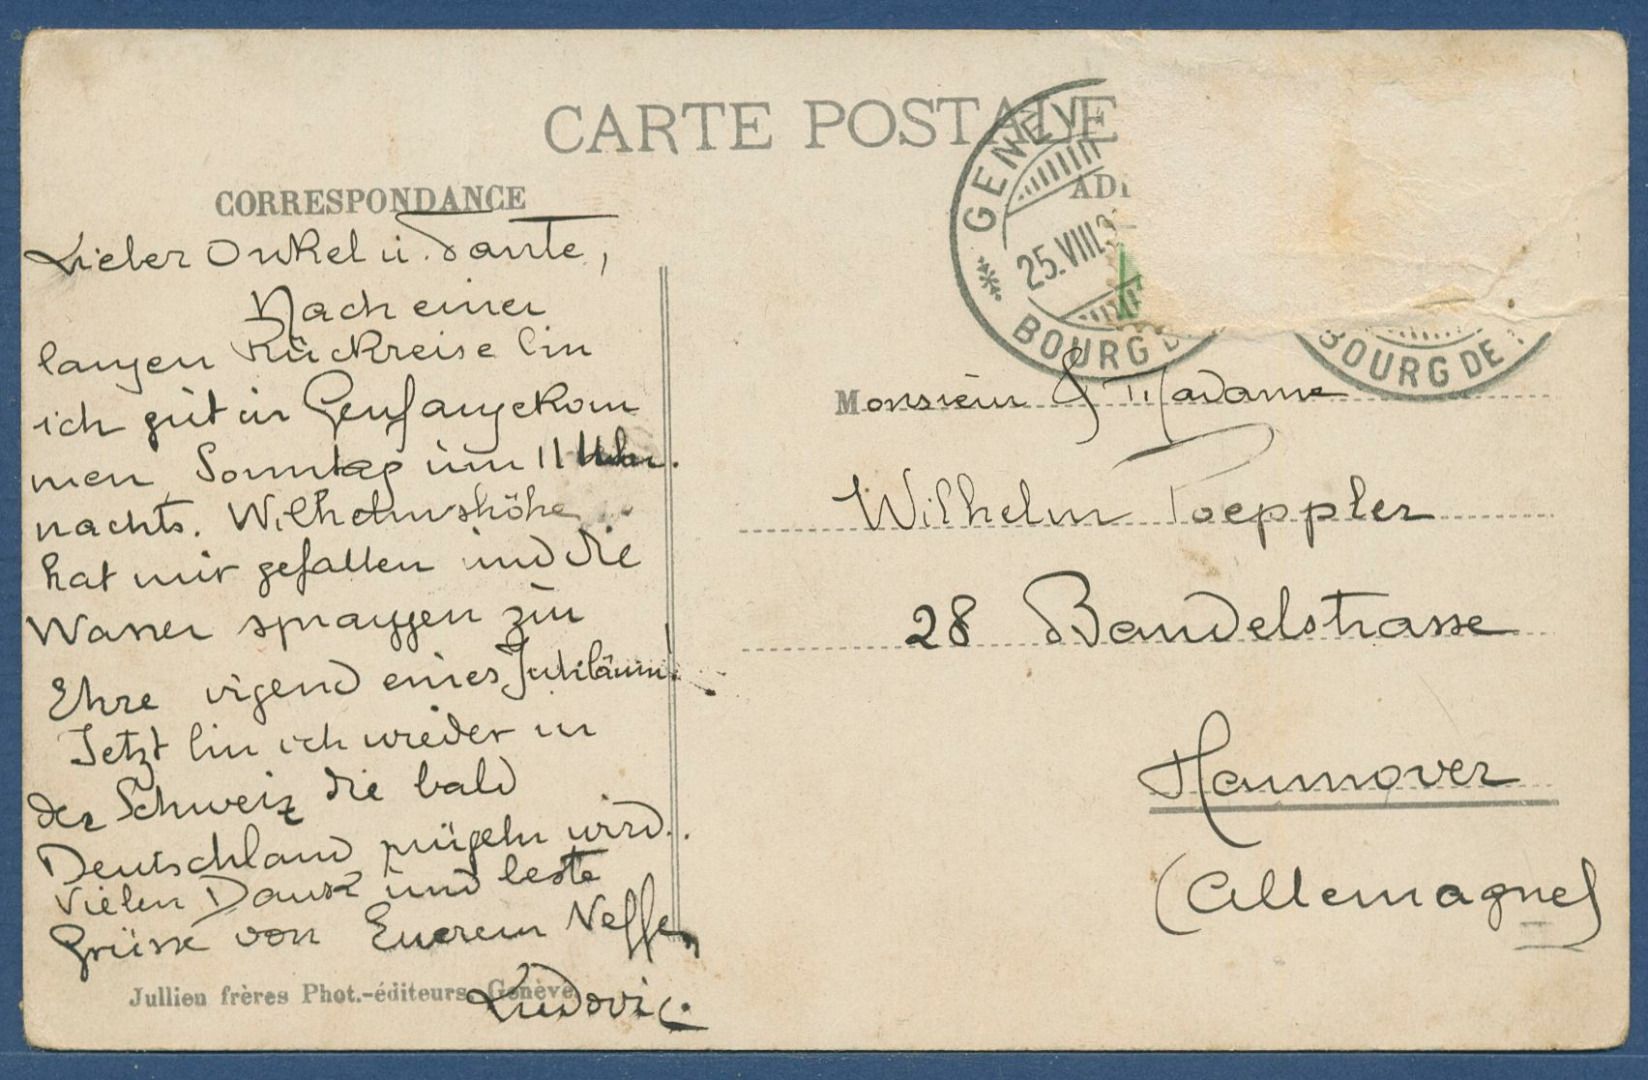 CARTE POSTALE
CORRESPONDANCE
AD
GENÈVE
25.VIII.
BOURG D
BOURG DE
Lieber Onkel u. Tante,
Nach einer
langen Rückreise bin
ich gut in Genf angekom
men Sonntag um 11 Uhr.
nachts. Wilhelmshöhe
hat mir gefallen und die
Wasser sprangen zur
Ehre irgend eines Jubiläum!
Jetzt bin ich wieder in
der Schweiz die bald
Deutschland prügeln wird.
Vielen Dank und beste
Grüsse von Euerem Neffen
Ludovic.
Jullien frères Phot.-éditeurs, Genève
Monsieur & Madame
Wilhelm Poeppler
28 Bandelstrasse
Hannover
(Allemagne)